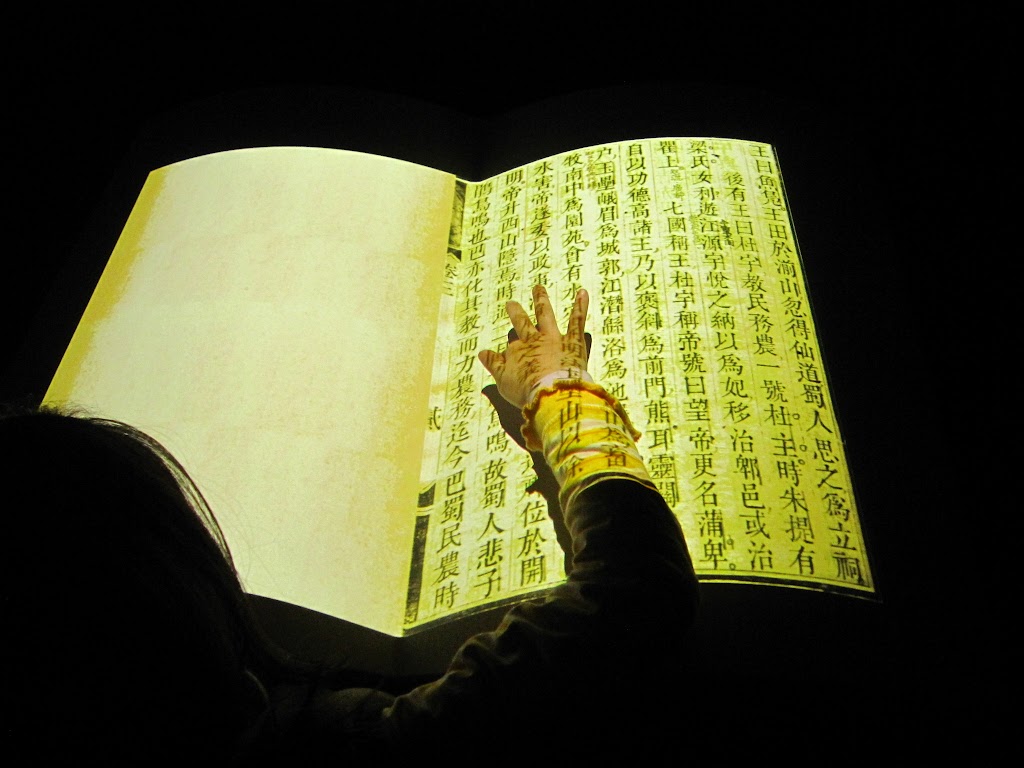 王曰魚鳧王田於湔山忽得仙道蜀人思之爲立祠
後有王曰杜宇教民務農一號杜主。時朱提有
梁氏女利遊江源宇悅之納以爲妃移治郫邑或治
瞿上 七國稱王杜宇稱帝號曰望帝更名蒲卑。
自以功德高諸王乃以褒斜爲前門熊耳靈關
戶玉壘峨眉爲城郭江潛緜洛爲池
牧南中爲園苑會有水 山以除
水害帝遂委以政事 位於開
明帝升西山隱焉時適二 鳥鳴故蜀人悲子
鵑鳥鳴也巴亦化其教而力農務迄今巴蜀民農時
卷三
貳